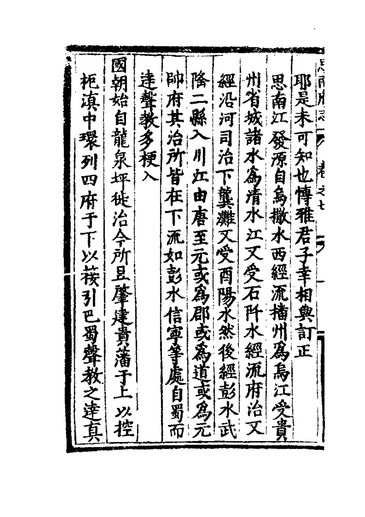 思南府志 卷之七
耶是未可知也愽雅君子幸相與訂正
思南江發源自烏撒水西經流播州爲烏江受貴
州省城諸水爲清水江又受石阡水經流府治又
經沿河司治下龔灘又受酉陽水然後經彭水武
隆二縣入川江由唐至元或爲郡或爲道或爲元
帥府其治所皆在下流如彭水信寧等處自蜀而
達聲教多梗入
國朝始自龍泉坪徙治今所且肇建貴藩于上以控
扼滇中環列四府于下以筱引巴蜀聲教之達真